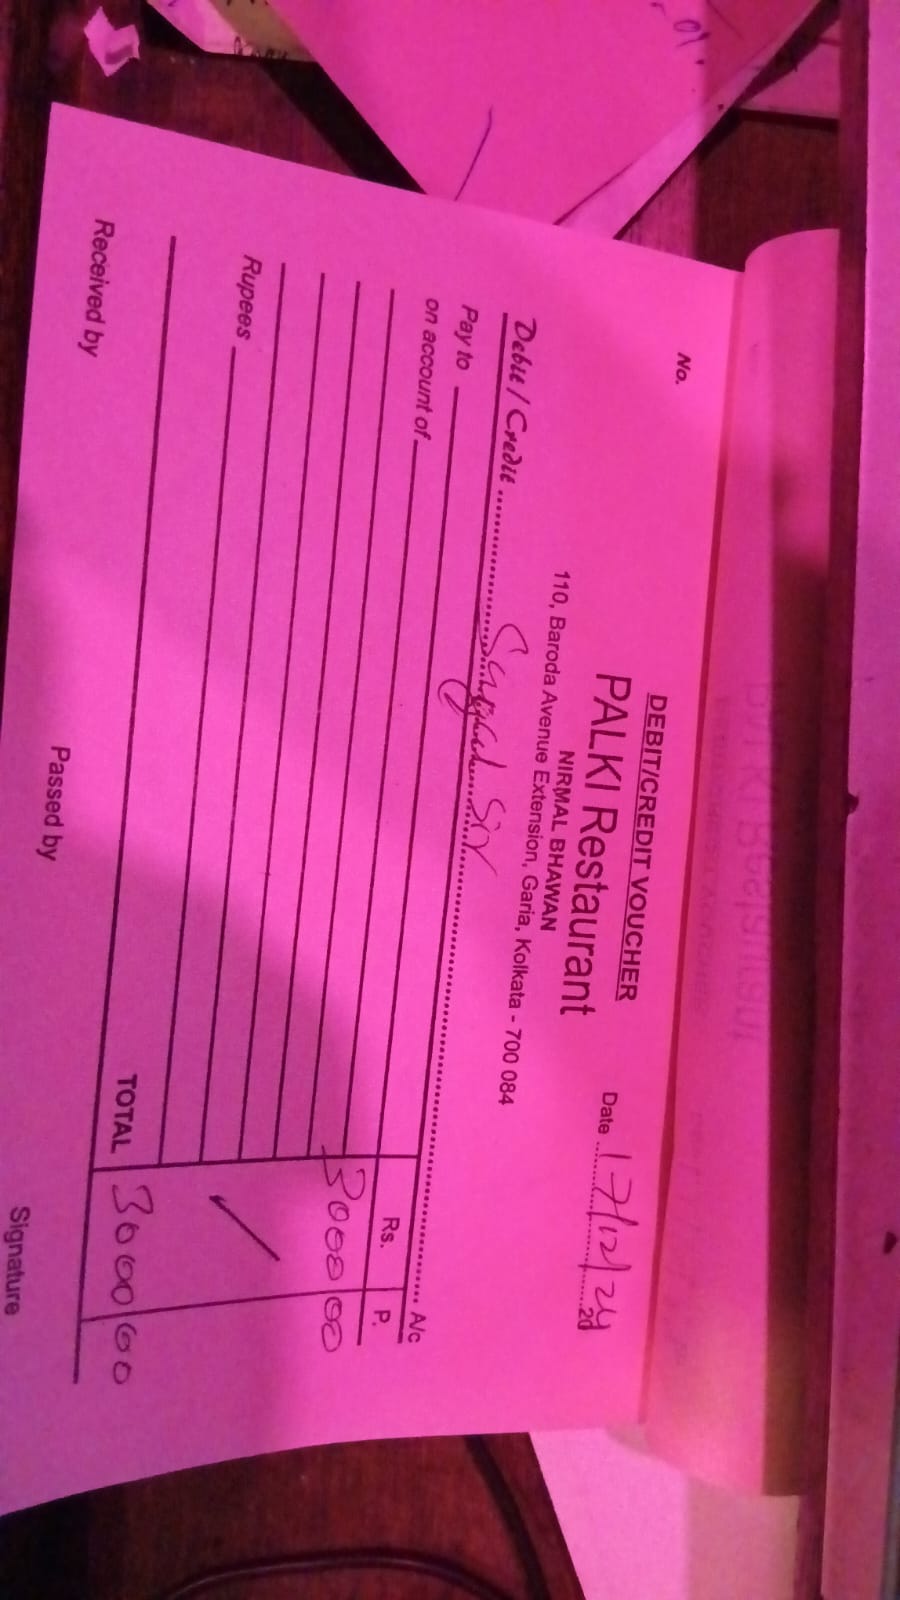 No.
DEBIT/CREDIT VOUCHER
PALKI Restaurant
NIRMAL BHAWAN
110, Baroda Avenue Extension, Garia, Kolkata - 700 084
Date 17/12/24 20
Debit / Credit Sir A/c
Pay to
on account of
Rs. P.
3000 00
Rupees
TOTAL 3000 00
Received by Passed by Signature